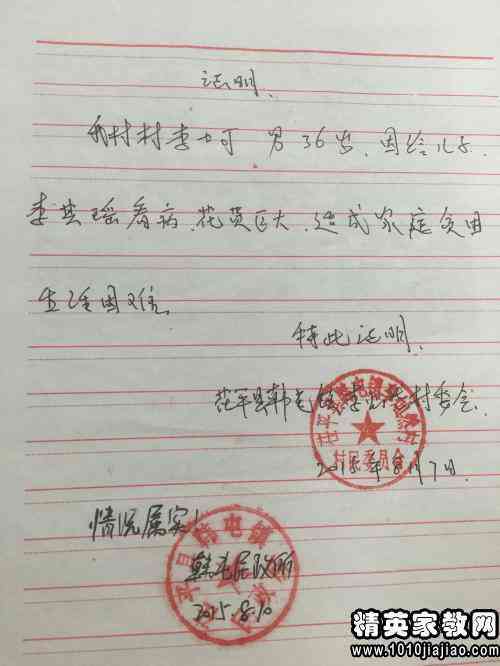 证明
我村村李 可 男36岁,因给儿子
李其瑶看病,花费巨大,造成家庭负困
生活困难
特此证明
茌平县韩屯镇李 村委会
村民委员会
2015年8月7日
情况属实!
韩屯民政所
2015.8.10
精英家教网
www.1010jiajiao.com